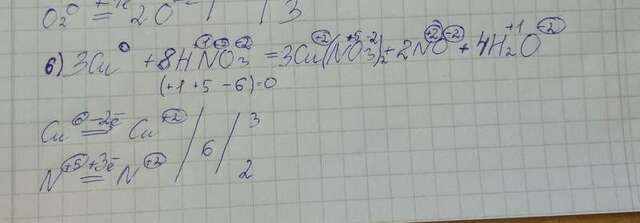 O₂⁰ = 2O / / 3
б) 3Cu⁰ + 8H⁺¹N⁺⁵O₃⁻² = 3Cu⁺²(N⁺⁵O₃⁻²)₂ + 2N⁺²O⁻² + 4H₂⁺¹O⁻²
(+1 +5 -6)=0
Cu⁰ -2ē = Cu⁺² / / 3
/ 6 /
N⁺⁵ +3ē = N⁺² / / 2